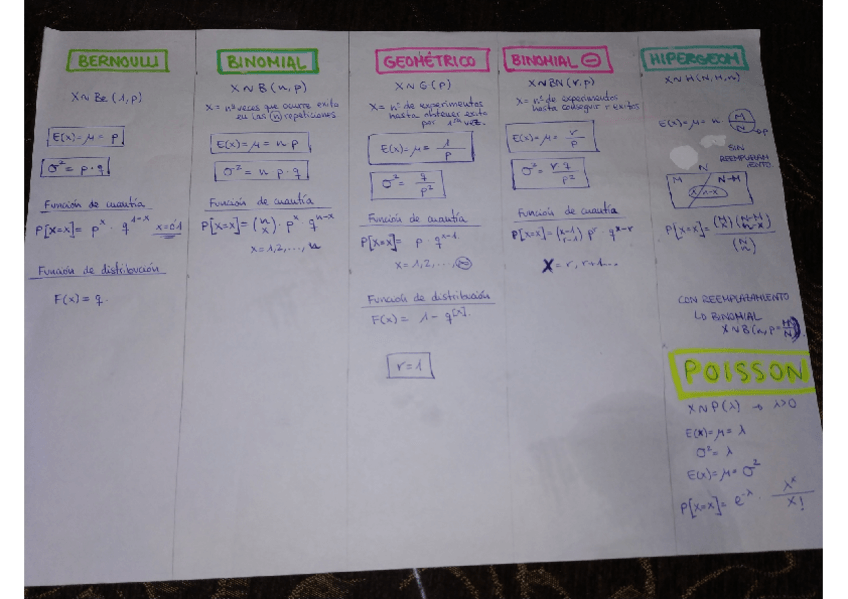 BERNOULLI
X ~ Be (1, p)
E(x) = μ = p
σ² = p · q
Función de cuantía
P[X=x] = p^x · q^(1-x) x=0,1
Función de distribución
F(x) = q
BINOMIAL
X ~ B (n, p)
X = nº veces que ocurre éxito
en las (n) repeticiones
E(x) = μ = n p
σ² = n p · q
Función de cuantía
P[X=x] = (n x) · p^x · q^(n-x)
x = 1, 2, ..., n
GEOMÉTRICO
X ~ G (p)
X = nº de experimentos
hasta obtener éxito
por 1ª vez.
E(x) = μ = 1/p
σ² = q/p²
Función de cuantía
P[X=x] = p · q^(x-1)
x = 1, 2, ..., ∞
Función de distribución
F(x) = 1 - q^[x].
r = 1
BINOMIAL ⊖
X ~ BN (r, p)
X = nº de experimentos
hasta conseguir r éxitos
E(x) = μ = r/p
σ² = r q/p²
Función de cuantía
P[X=x] = (x-1 r-1) p^r · q^(x-r)
X = r, r+1...
HIPERGEOM
X ~ H (N, M, n)
E(x) = μ = n M/N → p
SIN
REEMPLAZAM
IENTO
N
M N-M
x n-x
P[X=x] = (M x) (N-M n-x) / (N n)
CON REEMPLAZAMIENTO
LO BINOMIAL
X ~ B (n, p = M/N)
POISSON
X ~ P (λ) → λ>0
E(x) = μ = λ
σ² = λ
E(x) = μ = σ²
P[X=x] = e^-λ · λ^x / x!